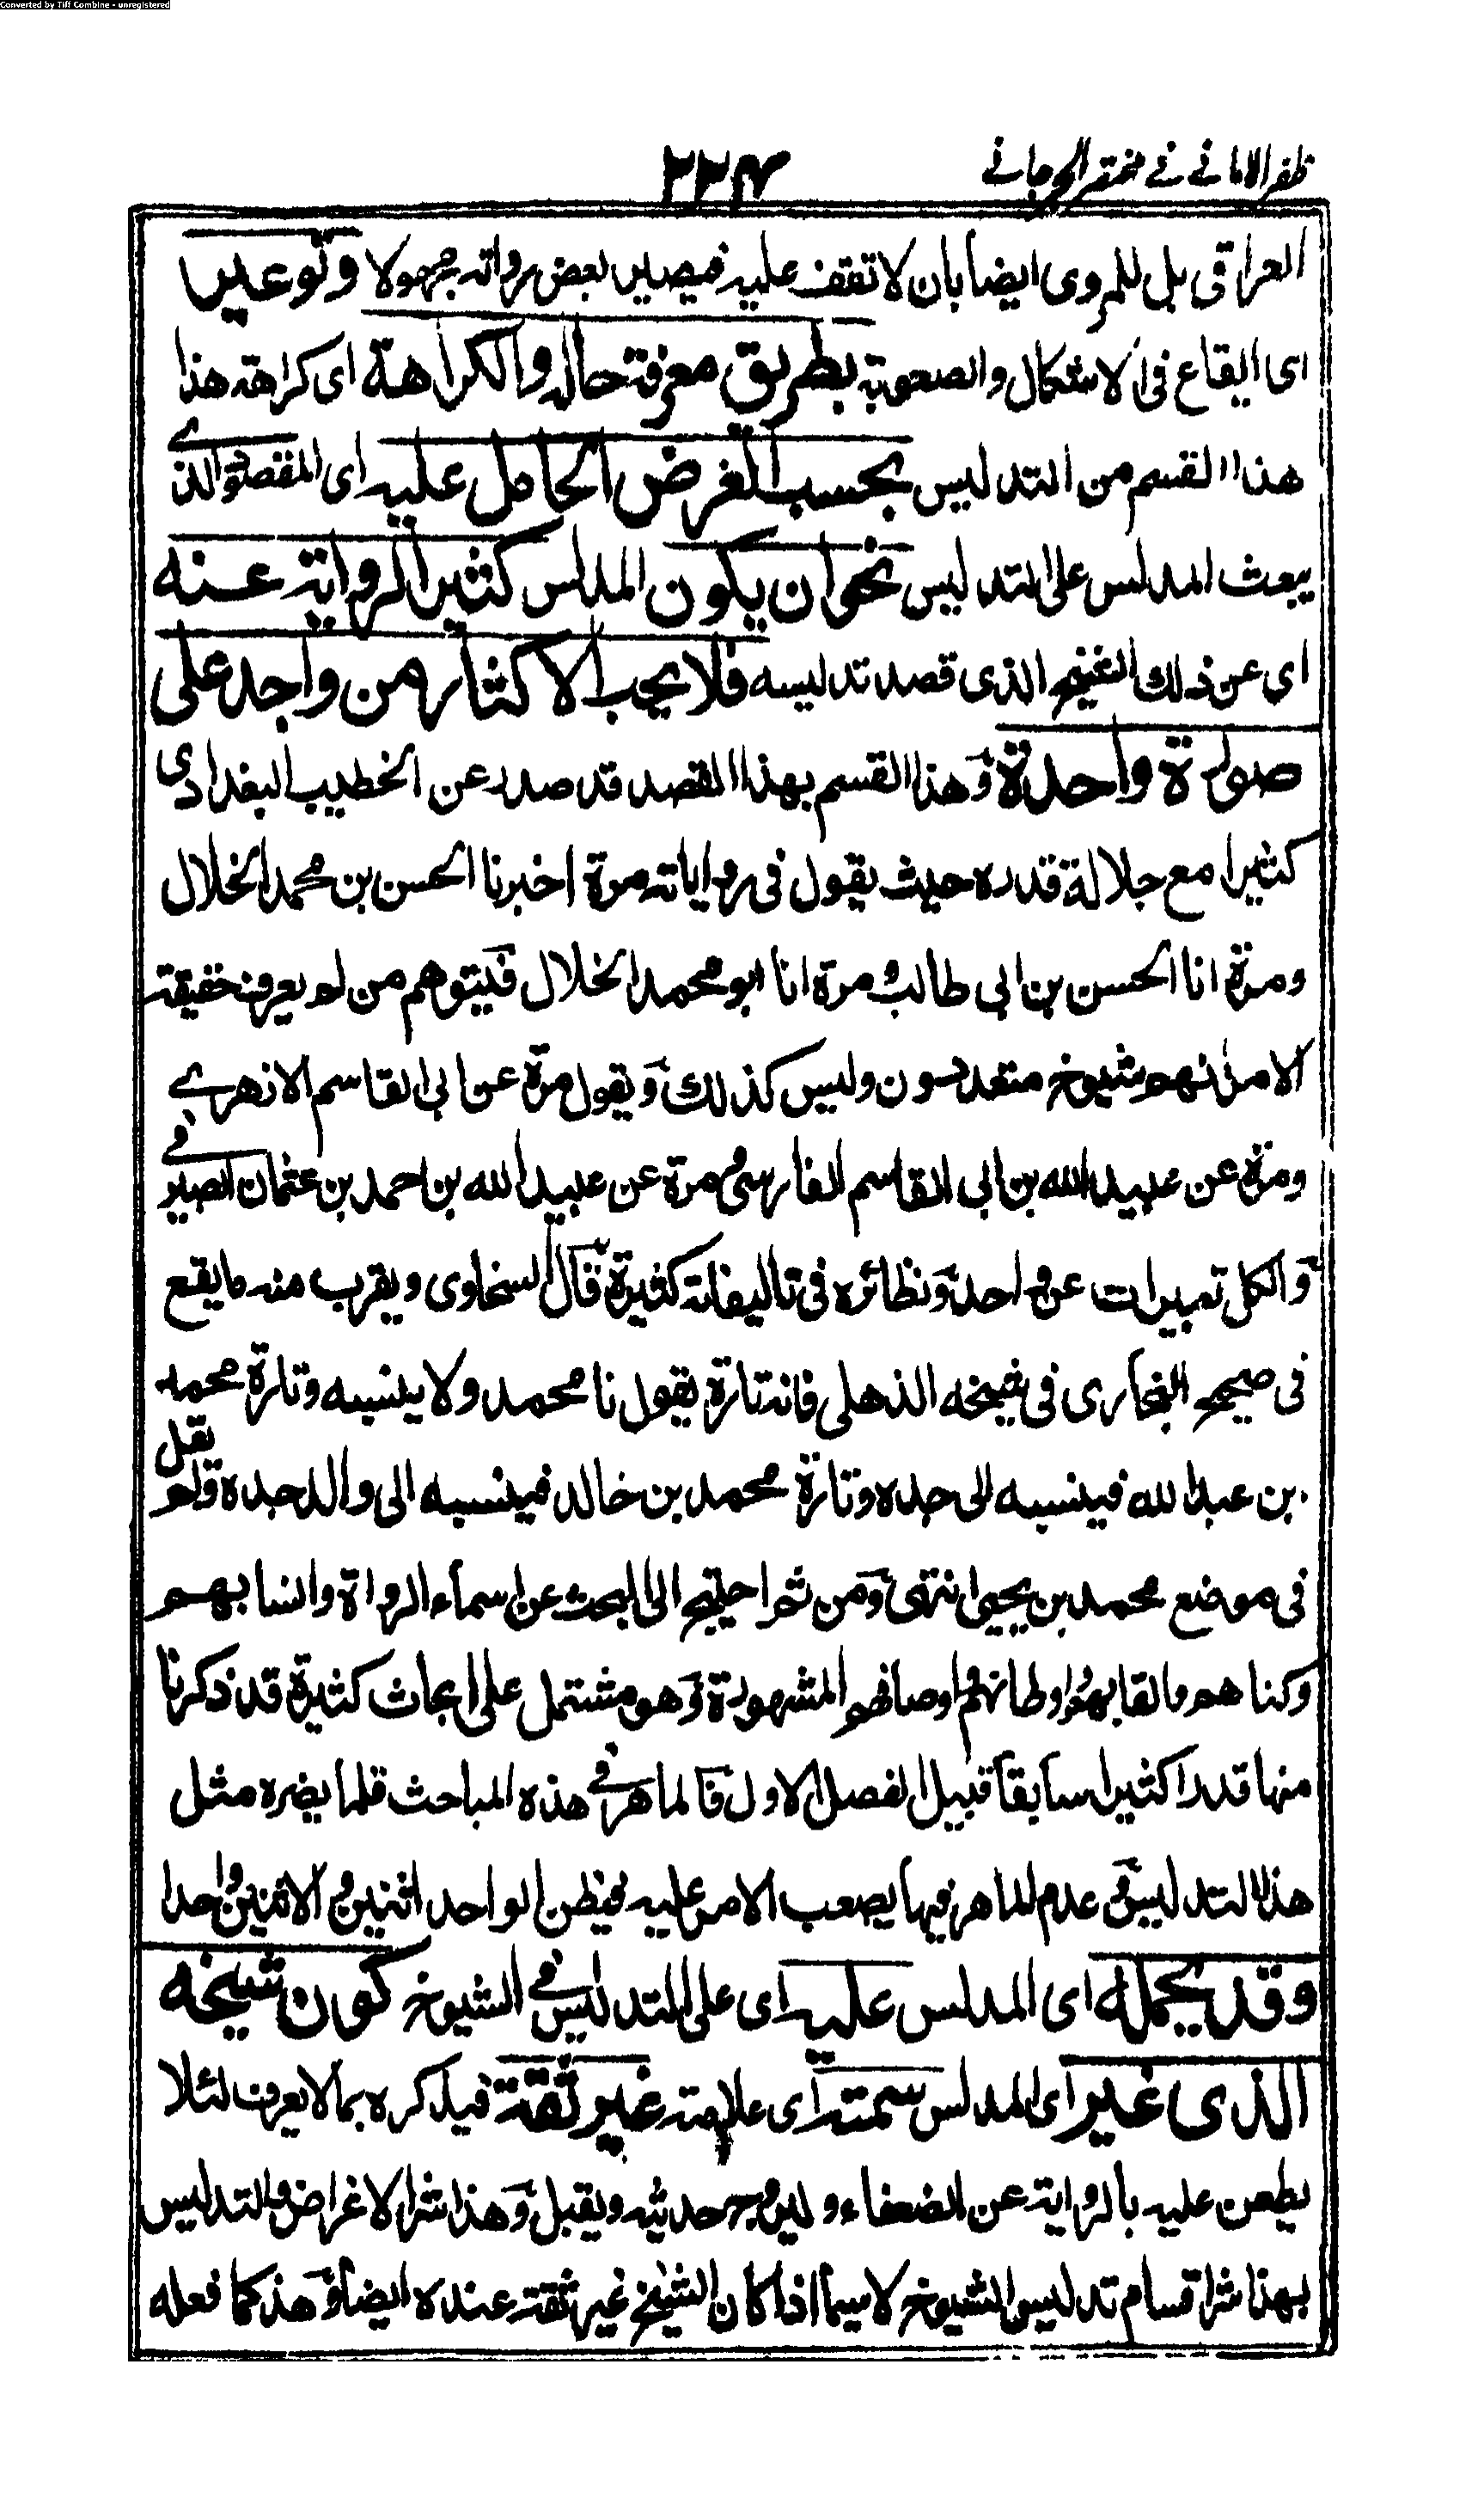 Converted by Tiff Combine - unregistered
ظفر الامانے فے مختصر الجرجانے
٢٢٤
العراقی بل للمروی ایضا بان لا تقف علیه فیصیر بعض رواته مجهولا وتوعیر
ای ایقاع فی الاشکال والصعوبة بطریق معرفة حاله والکراهة ای کراهة هذا
هذا القسم من التدلیس بحسب الغرض الحامل علیه ای المقصود الذے
یبعث المدلس علی التدلیس نحو ان یکون المدلس کثیر الروایة عنه
ای عن ذلك الشخص الذی قصد تدلیسه فلا یحب الاکثار من واحد علی
صورة واحدة وهذا القسم بهذا القصد قد صدر عن الخطیب البغدادی
کثیرا مع جلالة قدره حیث یقول فی روایاته مرة اخبرنا الحسن بن محمد الخلال
ومرة انا الحسن بن ابی طالب ومرة انا ابو محمد الخلال فیتوهم من لم یعرف حقیقة
الامر انهم شیوخ متعددون ولیس کذلك ویقول مرة عن ابی القاسم الازهرے
ومرة عن عبید الله بن ابی القاسم الفارسی ومرة عن عبید الله بن احمد بن عثمان الصیرفے
والکل تعبیرات عن واحد ونظائره فی تالیفاته کثیرة قال السخاوی ویقرب منه ما یقع
فی صحیح البخاری فی شیخه الذهلی فانه تارة یقول نا محمد ولا ینسبه وتارة محمد
بن عبد الله فینسبه الی جده وتارة محمد بن خالد فینسبه الی والد جده ولم یقل
فی موضع محمد بن یحیی انتهی ومن ثم احتیج الی البحث عن اسماء الرواة وانسابهم
وکناهم والقابهم واوطانهم واوصافهم المشهورة وهو مشتمل علی ابحاث کثیرة قد ذکرنا
منها قدرا کثیرا سابقا قبیل الفصل الاول فالماهر فی هذه المباحث قلما یضره مثل
هذا التدلیس وعدم الماهر فیها یصعب الامر علیه فیظن الواحد اثنین والاثنین واحدا
وقد یحمله ای المدلس علیه ای علی التدلیس فی الشیوخ کون شیخه
الذی غیر ای المدلس سمته ای علامته غیر ثقة فیذکره بما لا یعرف لئلا
یطعن علیه بالروایة عن الضعفاء ولیروج حدیثه ویقبل وهذا شر الاغراض والتدلیس
بهذا شر اقسام تدلیس الشیوخ لا سیما اذا کان الشیخ غیر ثقة عنده ایضا وهذا کما فعله